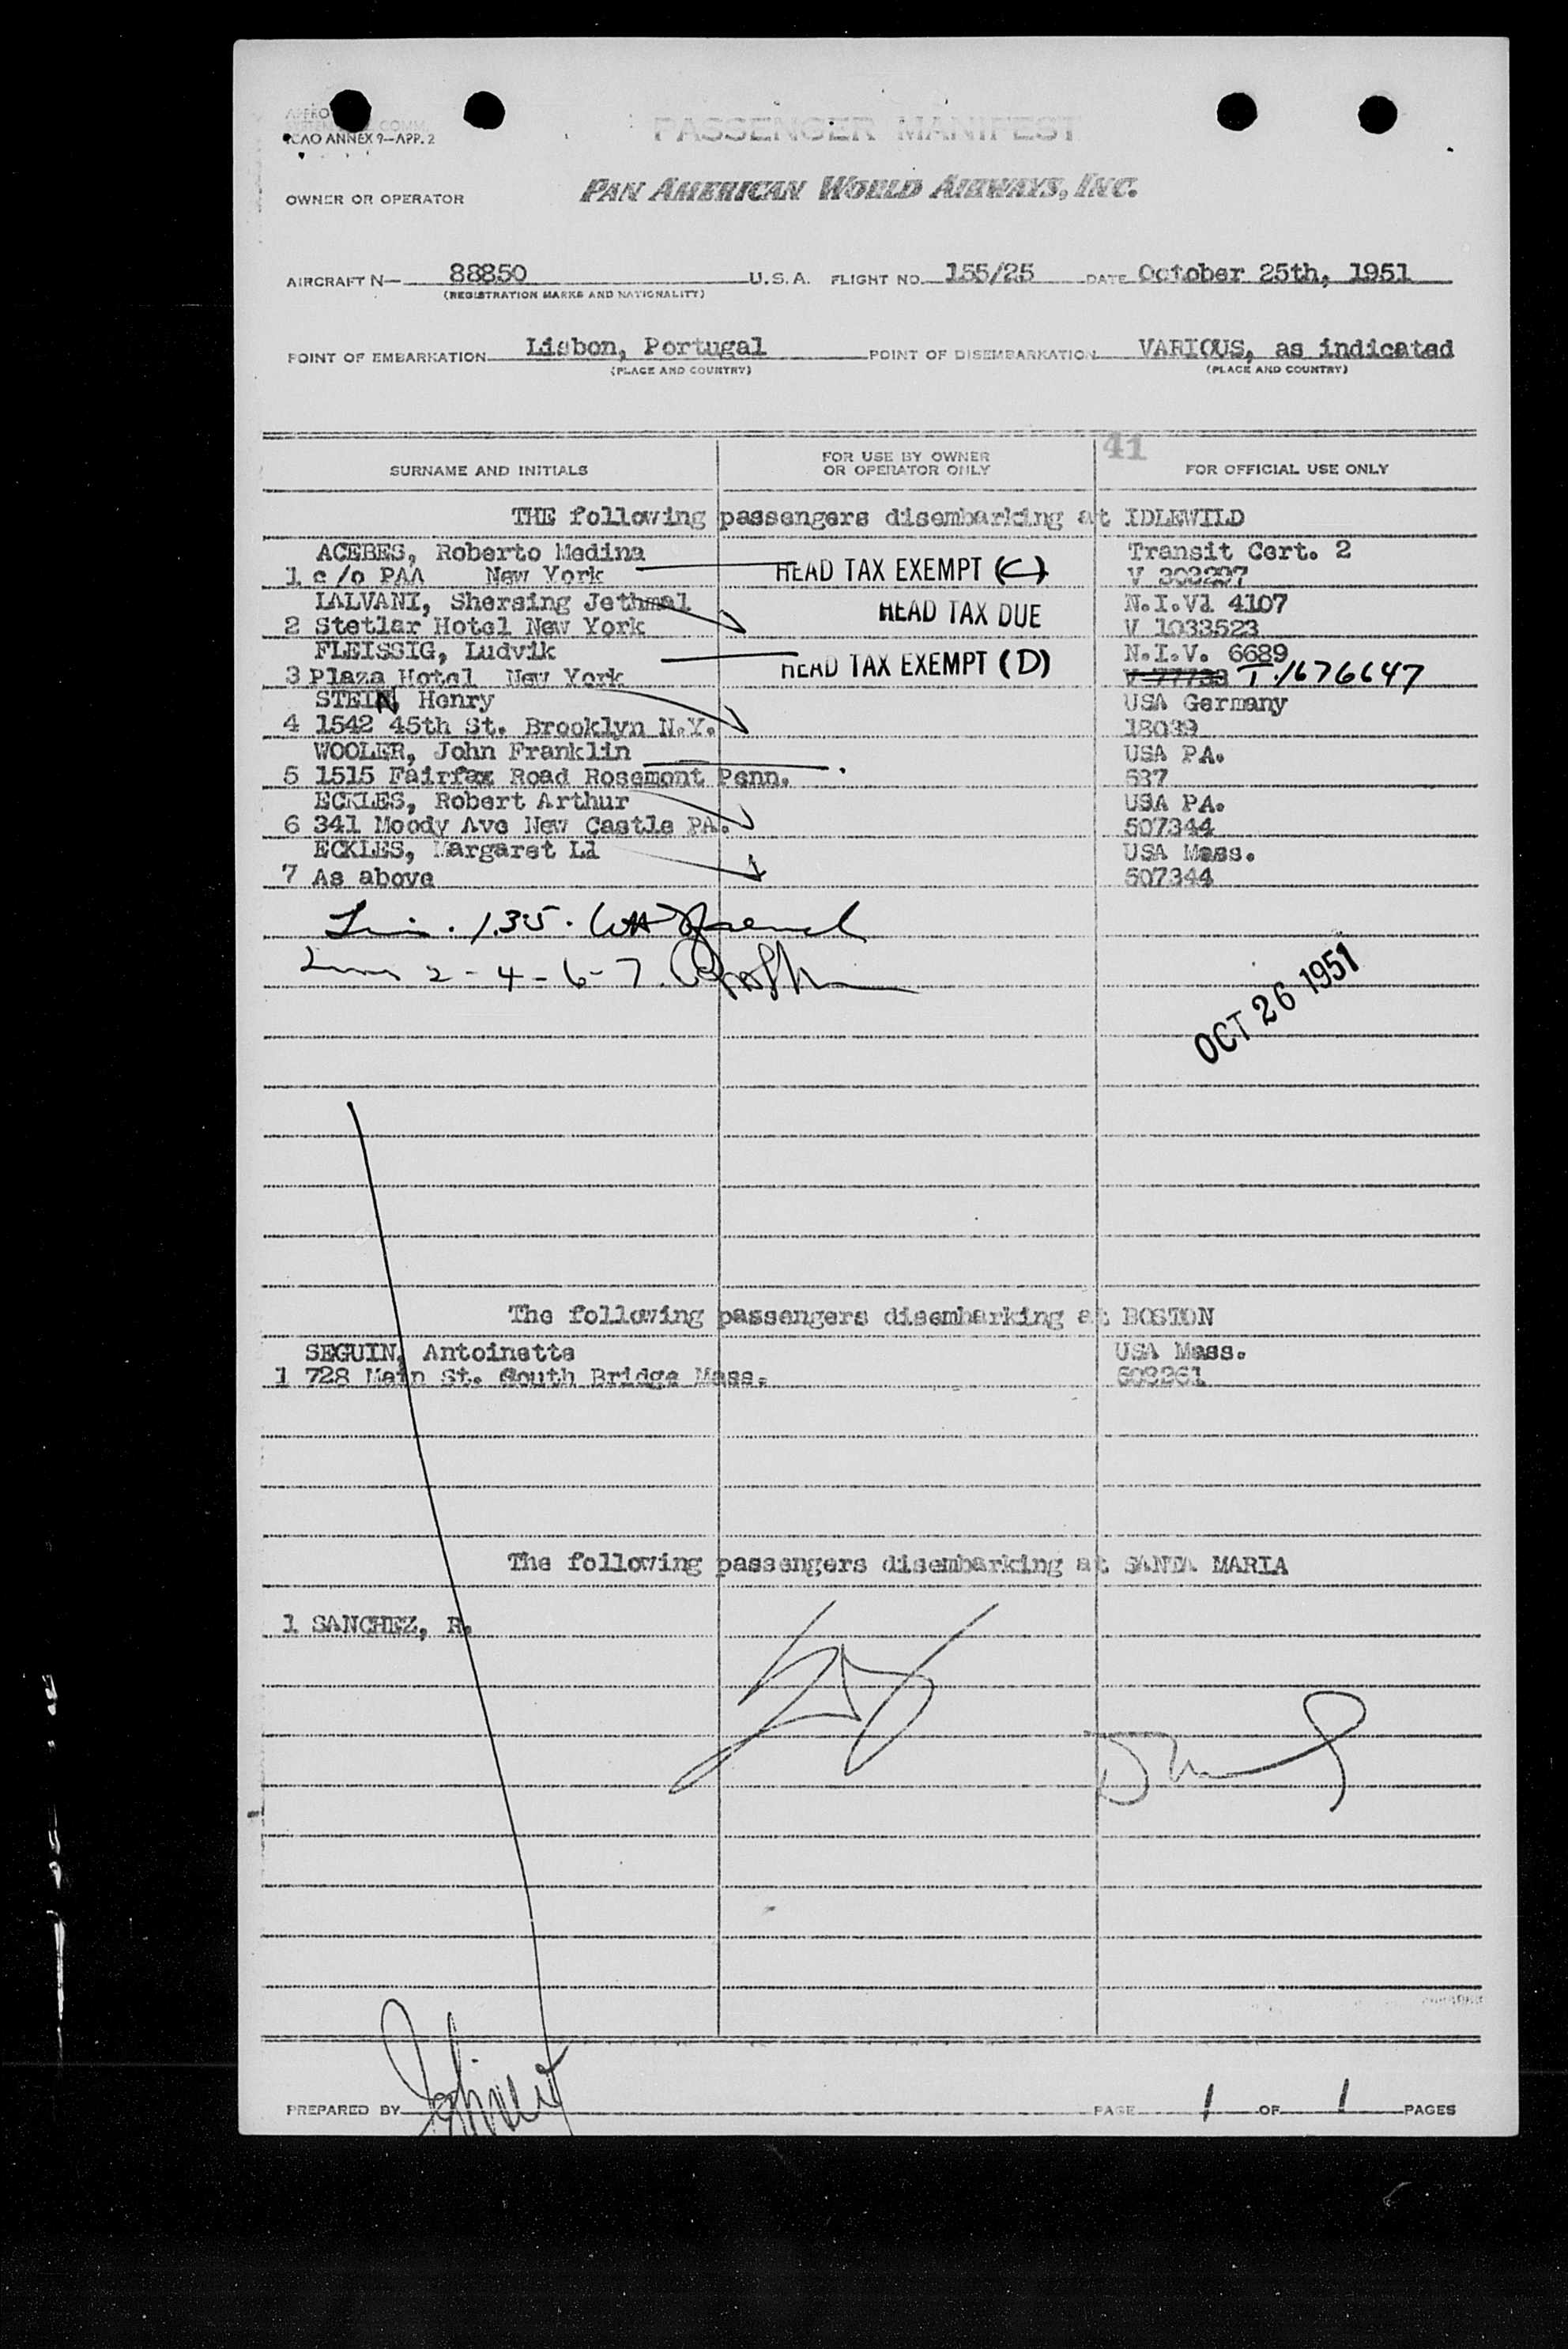 ICAO ANNEX 9—APP. 2
PASSENGER MANIFEST
OWNER OR OPERATOR
PAN AMERICAN WORLD AIRWAYS, INC.
AIRCRAFT N— 88850 U.S.A. FLIGHT NO. 155/25 DATE October 25th, 1951
(REGISTRATION MARKS AND NATIONALITY)
POINT OF EMBARKATION Lisbon, Portugal POINT OF DISEMBARKATION VARIOUS, as indicated
(PLACE AND COUNTRY) (PLACE AND COUNTRY)
41
SURNAME AND INITIALS FOR USE BY OWNER OR OPERATOR ONLY FOR OFFICIAL USE ONLY
THE following passengers disembarking at IDLEWILD
ACEBES, Roberto Medina Transit Cert. 2
1 c/o PAA New York HEAD TAX EXEMPT (C) V 303297
LALVANI, Shersing Jethmal HEAD TAX DUE N.I.Vl 4107
2 Stetlar Hotel New York V 1033523
FLEISSIG, Ludvik N.I.V. 6689
3 Plaza Hotel New York HEAD TAX EXEMPT (D) T.1676647
STEIN, Henry USA Germany
4 1542 45th St. Brooklyn N.Y. 18039
WOOLER, John Franklin USA PA.
5 1515 Fairfax Road Rosemont Penn. 587
ECKLES, Robert Arthur USA PA.
6 341 Moody Ave New Castle PA. 507344
ECKLES, Margaret Ll USA Mass.
7 As above 507344
1.35.
2-4-6-7.
OCT 26 1951
The following passengers disembarking at BOSTON
SEGUIN, Antoinette USA Mass.
1 728 Main St. South Bridge Mass. 603261
The following passengers disembarking at SANTA MARIA
1 SANCHEZ, R.
PREPARED BY PAGE 1 OF 1 PAGES